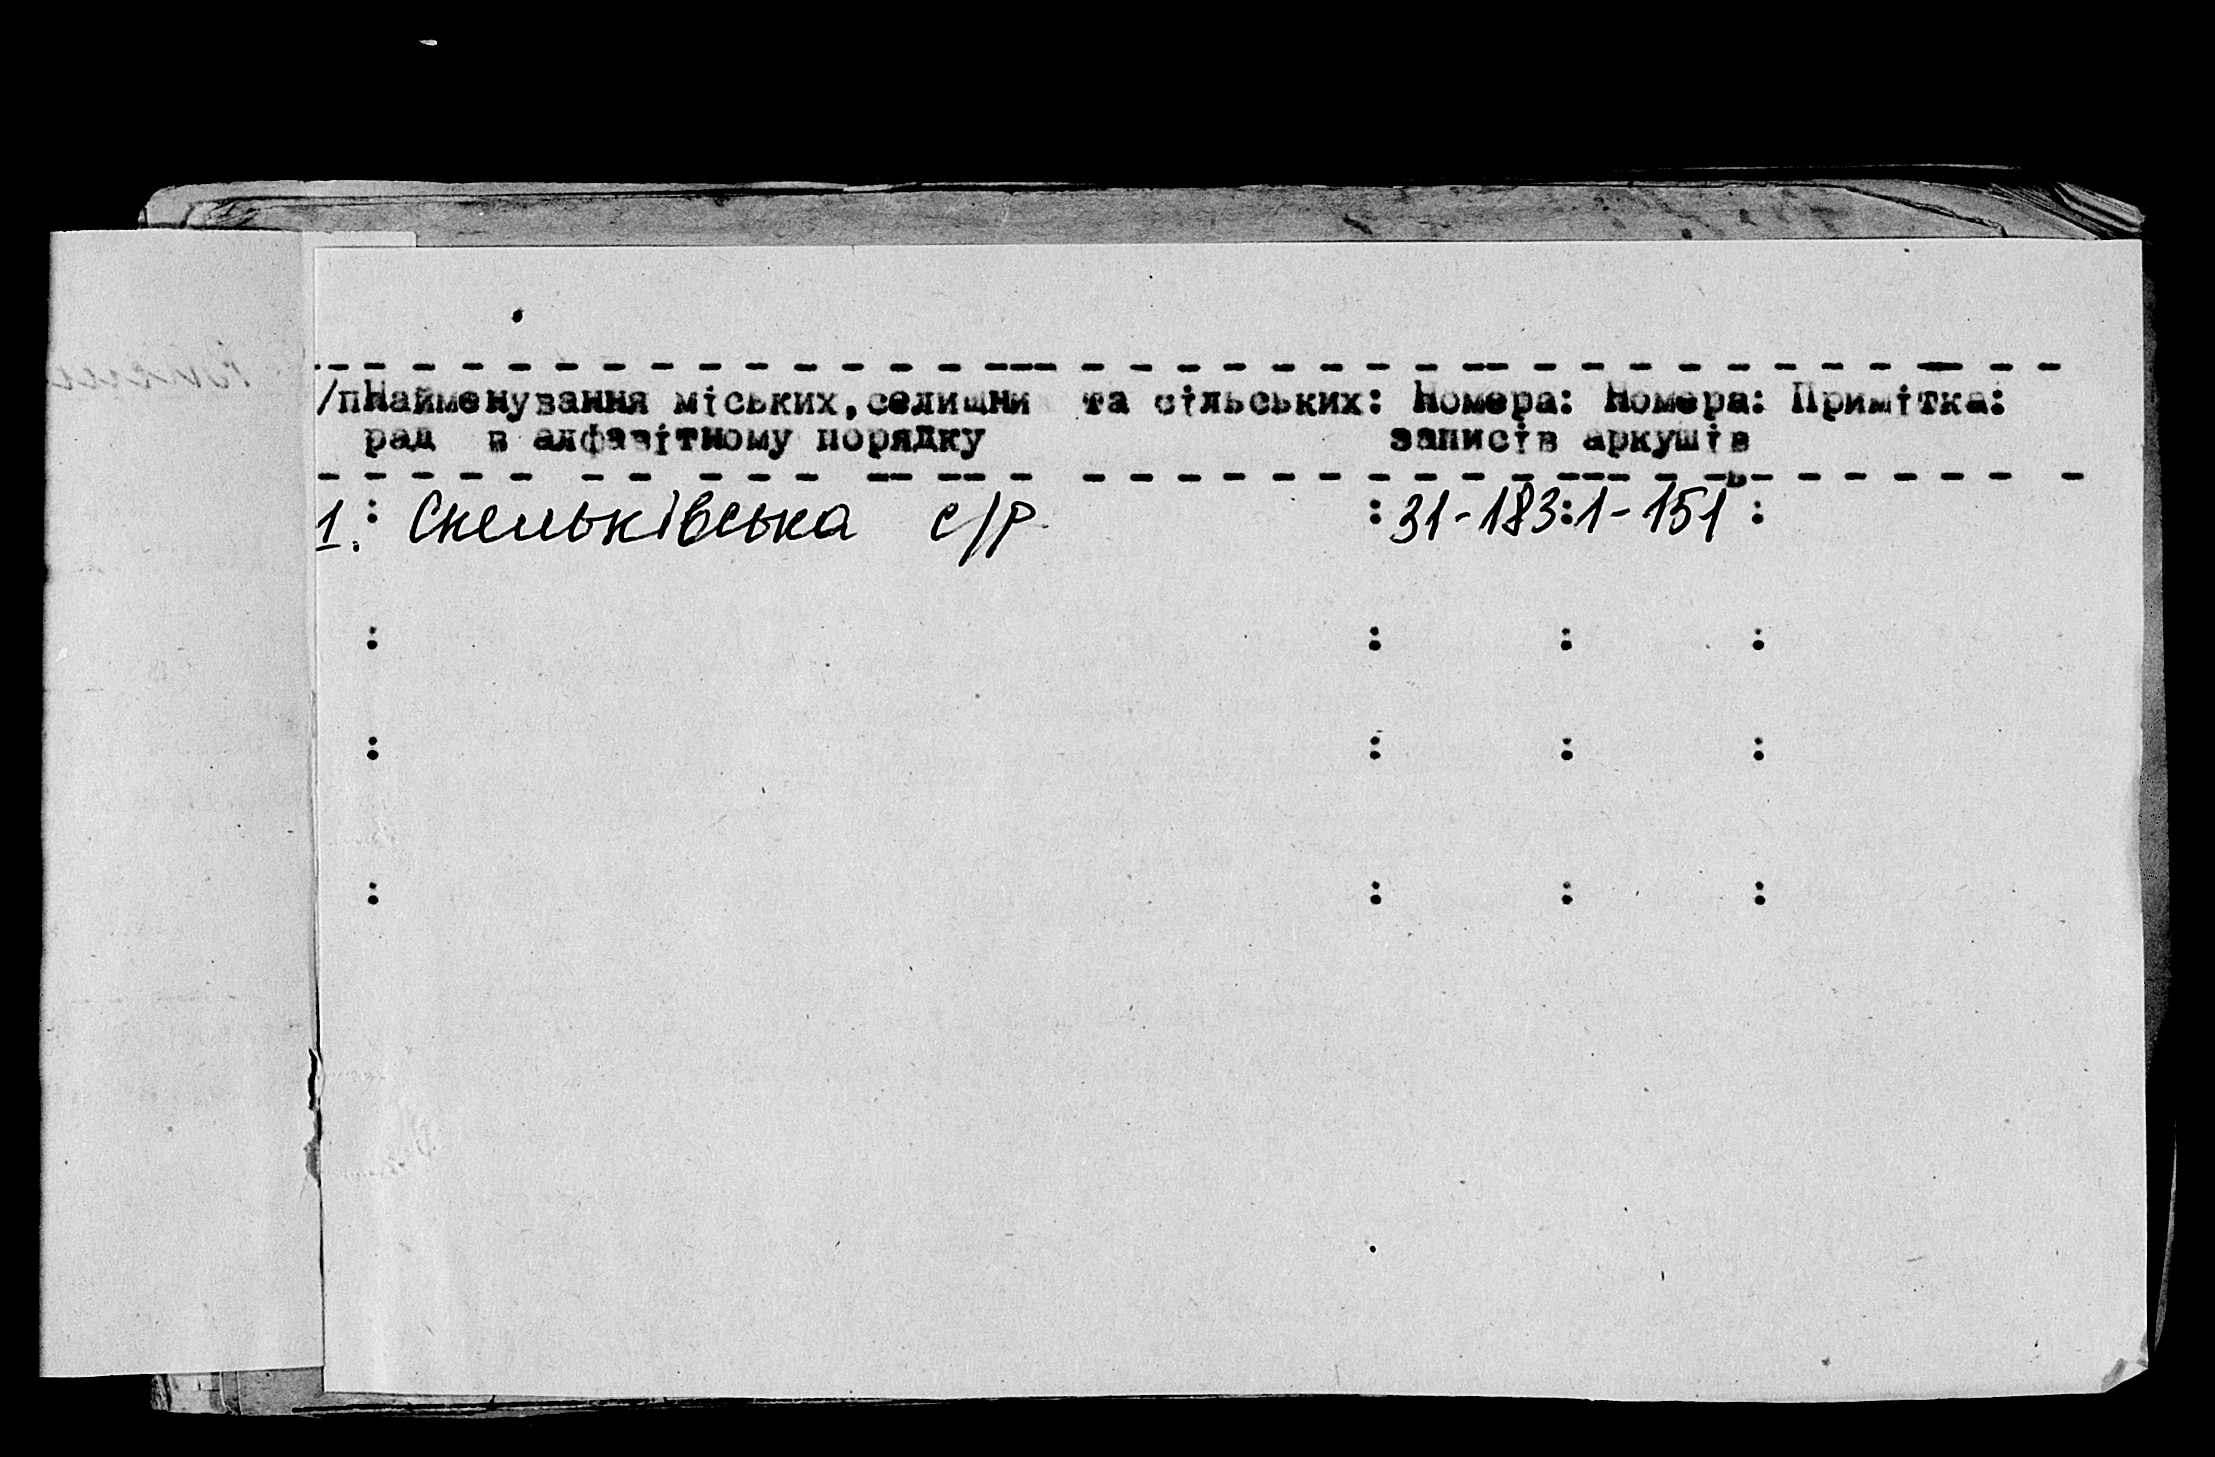 /пНайменування міських,селищни та сільських: Номера: Номера: Примітка:
рад в алфавітному порядку записів аркушів
1. : Скельківська с/р : 31-183:1-151 :
: : : :
: : : :
: : : :